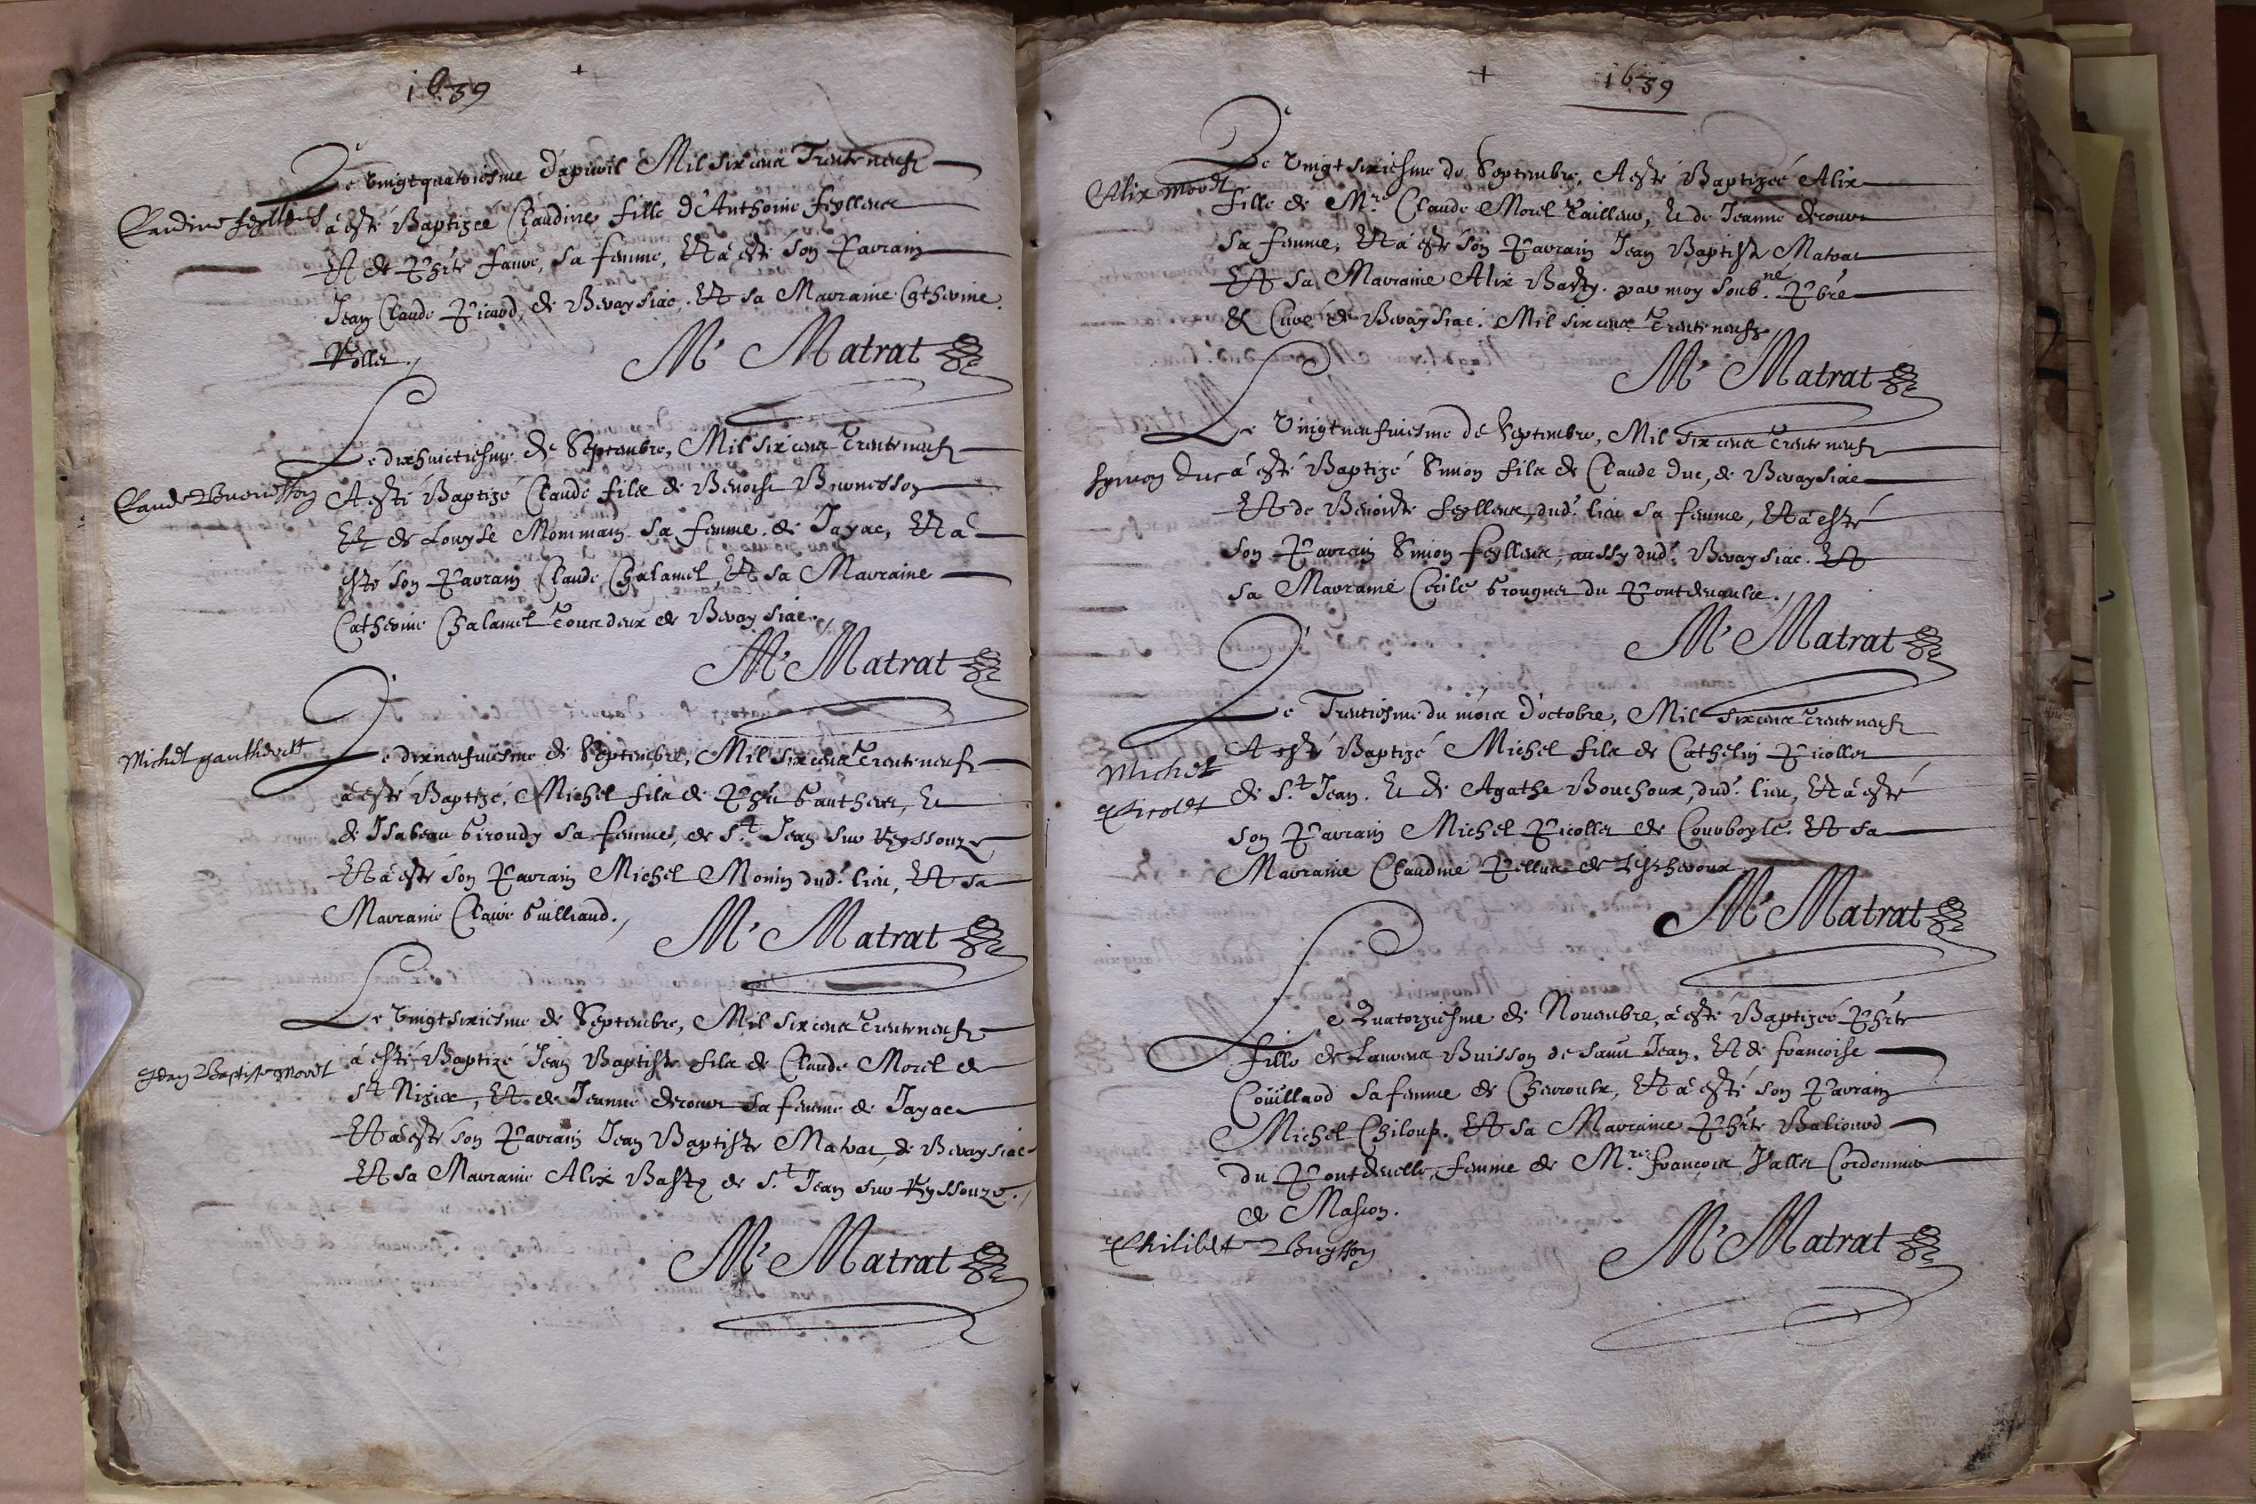 1639
Le vingtquatriesme d'apvril Mil six cens Trente neufz
Claudine feyllens
a esté Baptizeé Claudine fille d'Anthoine feyllens
Et de Phte faure, sa femme, Et a esté son Parrain
Jean Claude Picard, de Bevaysiac, Et sa Marraine Catherine
M. Matrat
Le dixhuictiesme de Septembre, Mil six cens Trente neufz
A esté Baptizé Claude filz de Benoist
Et de Louyse Mommain sa femme de Jayac, Et a
esté son Parrain Claude Chalamel, Et sa Marraine
Catherine Chalamel Tous deux de Bevaysiac.
M. Matrat
Michel gautheret
Le dixneufviesme de Septembre, Mil six cens Trente neufz
a esté Baptizé, Michel filz de Phe Gautheret, Et
de Isabeau Giroudy sa femme, de St Jean sur Reyssouze
Et a esté son Parrain Michel Monin dud. lieu, Et sa
Marraine Claire Guilliaud.
M. Matrat
Le Vingtsixiesme de Septembre, Mil six cens Trente neufz
Jean Baptiste morel
a esté Baptizé Jean Baptiste filz de Claude Morel de
St Nizier, Et de Jeanne sa femme de Jayac
Et a esté son Parrain Jean Baptiste Matrat, de Bevaysiac
Et sa Marraine Alix Basty de St Jean sur Reyssouze.
M. Matrat
1639
Le Vingt sixiesme de Septembre, A esté Baptizeé Alix
Alix morel
fille de Mre Claude Morel Tailleur, Et de Jeanne
sa femme, Et a esté son Parrain Jean Baptiste Matrat
Et sa Marraine Alix Basty. par moy soubne Pbre
Et Curé de Bevaysiac. Mil six cens Trente neufz
M. Matrat
Le Vingtneufviesme de Septembre, Mil six cens Trente neufz
symon duc
a esté Baptizé Simon filz de Claude Duc, de Bevaysiac
Et de Benoiste feyllens, dud. lieu sa femme, Et a esté
son Parrain Simon feyllens, aussy dud. Bevaysiac. Et
sa Marraine Cecile du Pontdevaulx.
M. Matrat
Le Trentiesme du mois d'octobre, Mil six cens Trente neufz
A esté Baptizé Michel filz de Cathelin Picollet
Michel
Picolet
de St Jean. Et de Agathe Bouchoux, dud. lieu, Et a esté
son Parrain Michel Picollet de Et sa
Marraine Claudine de
M. Matrat
Le Quatorziesme de Novembre, a esté Baptizeé Phte
fille de Laurens Buisson de Saint Jean, Et de francoise
Couillard sa femme de Chevroulx, Et a esté son Parrain
Michel Chiloup. Et sa Marraine Phte
du Pontdevelle, femme de Mre francois Jallet Cordonnier
de Mascon.
Philibert Buysson
M. Matrat